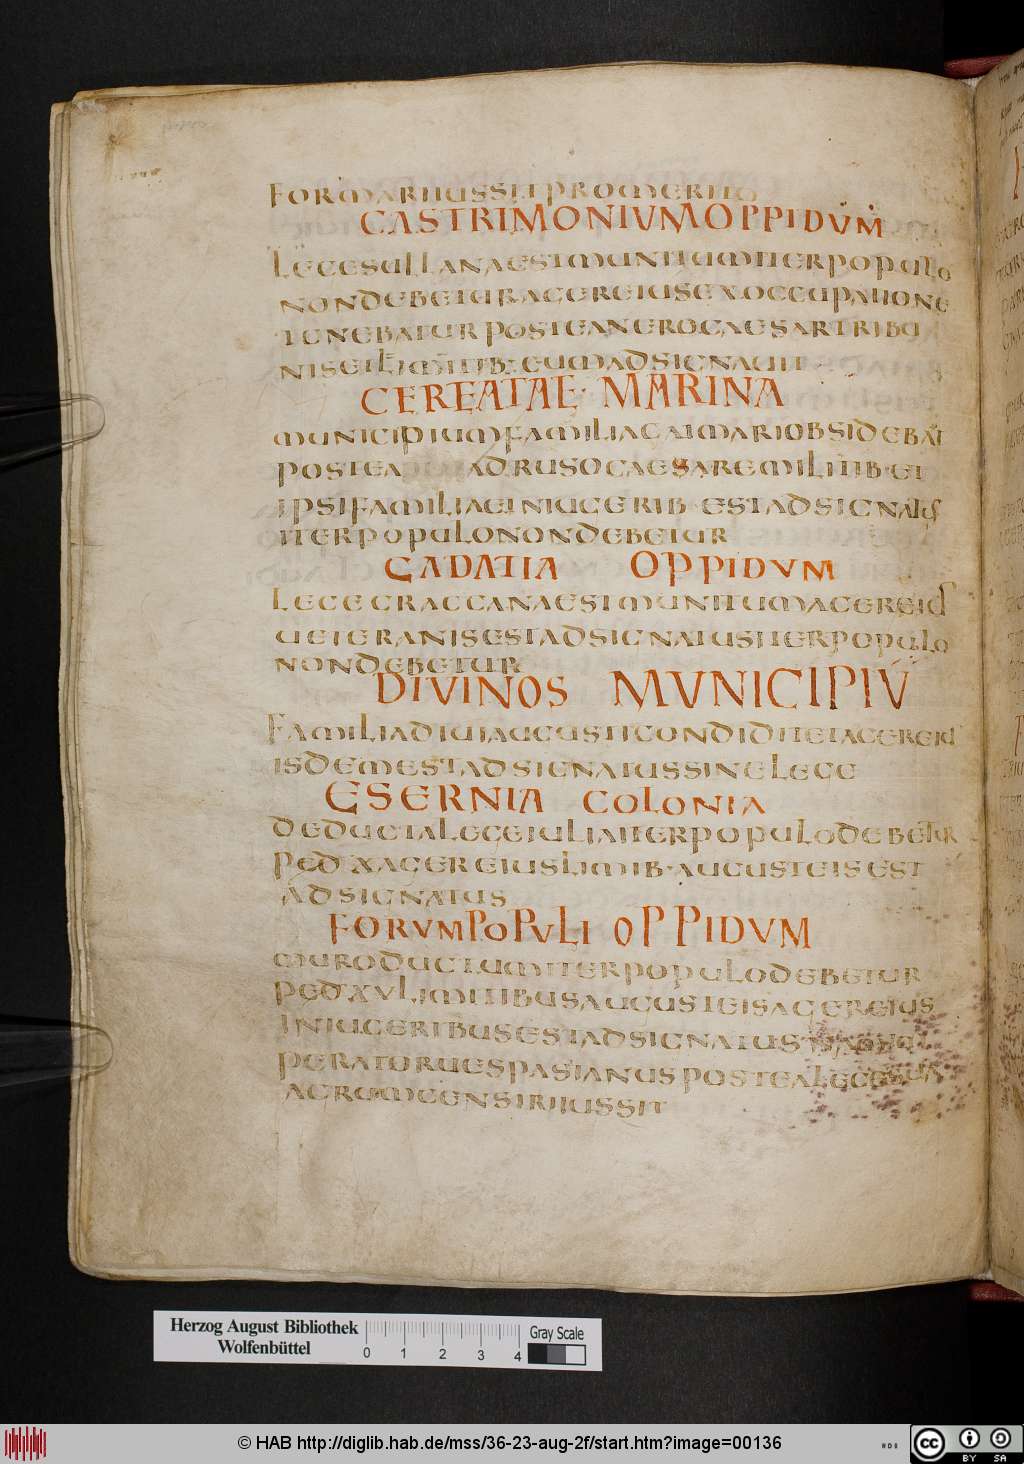 FORMARIIUSSITPROMERITO
CASTRIMONIVMOPPIDVM
LEGESULLANAESTMUNITUMITERPOPULO
NONDEBETURAGEREIUSEXOCCUPATIONE
TENEBATURPOSTEANEROCAESARTRIBU
NISETMILITIB·EUMADSIGNAUIT
CEREATAE· MARINA
MUNICIPIUMFAMILIAGAIMARIOBSIDEBAT
POSTEA ADRUSOCAESAREMILITIB·ET
IPSIFAMILIAEINIUGERIB·ESTADSIGNATUS
ITERPOPULONONDEBETUR
GADATIA OPPIDVM
LEGEGRACCANAESTMUNITUMAGEREIUS
UETERANISESTADSIGNATUSITERPOPULO
NONDEBETUR
DIVINOS MVNICIPIV
FAMILIADIUIAUGUSTICONDIDITETAGEREIU
ISDEMESTADSIGNATUSSINELEGE
ESERNIA COLONIA
DEDUCTALEGEIULIAITERPOPULODEBETUR
PEDXAGEREIUSLIMIB·AUGUSTEISEST
ADSIGNATUS
FORVMPOPVLI OPPIDVM
MURODUCTUMITERPOPULODEBETUR
PEDXVLIMITIBUSAUGUSTEISAGEREIUS
INIUGERIBUSESTADSIGNATUS
PERATORUESPASIANUSPOSTEALEGESUA
AGRUMCENSIRIIUSSIT
Herzog August Bibliothek
Wolfenbüttel
0 1 2 3 4
Gray Scale
© HAB http://diglib.hab.de/mss/36-23-aug-2f/start.htm?image=00136
CC BY SA